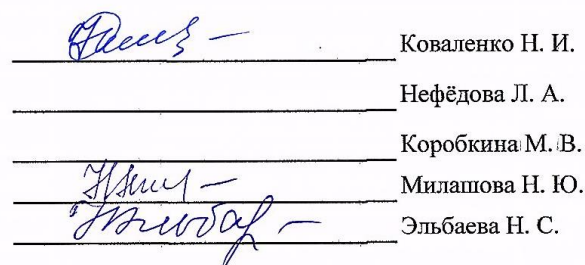 Коваленко Н. И.
Нефёдова Л. А.
Коробкина М. В.
Милашова Н. Ю.
Эльбаева Н. С.